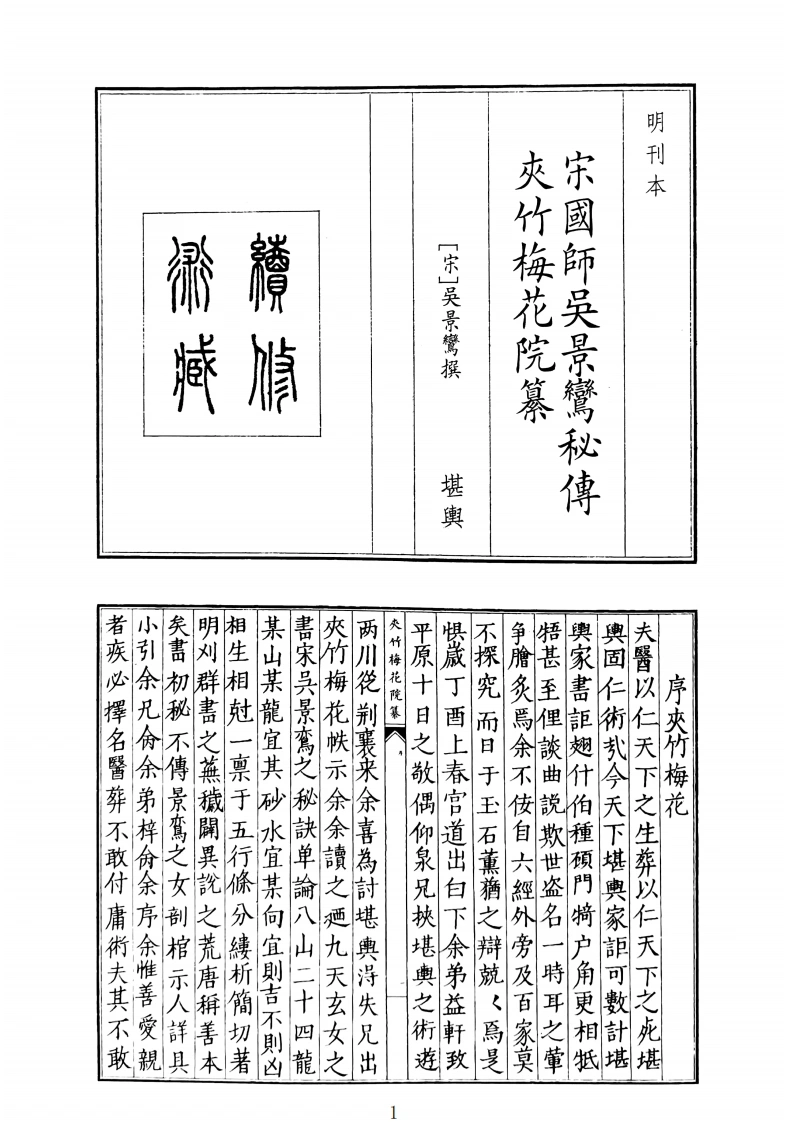 明刊本
宋國師吳景鸞秘傳
夾竹梅花院纂
[宋]吳景鸞撰
堪輿
續修
術藏
序夾竹梅花
夫醫以仁天下之生葬以仁天下之死堪
輿固仁術㢤今天下堪輿家詎可數計堪
輿家書詎翅什伯種碩門犄户角更相牴
牾甚至俚談曲說欺世盗名一時耳之葷
争膾炙焉余不佞自六經外旁及百家莫
不探究而日于玉石薰猶之辯兢〱焉是
惧嵗丁酉上春宫道出白下余弟益軒致
平原十日之敬偶仰泉兄挾堪輿之術遊
夾竹梅花院纂
两川從荆襄来余喜為討堪輿淂失兄出
夾竹梅花帙示余余讀之廼九天玄女之
書宋吳景鸞之秘訣单論八山二十四龍
某山某龍宜其砂水宜某向宜則吉不則凶
相生相尅一禀于五行條分縷析簡切著
明刈群書之蕪穢闢異說之荒唐稱善本
矣書初秘不傳景鸞之女剖棺示人詳具
小引余兄俞余弟梓俞余序余惟善愛親
者疾必擇名醫葬不敢付庸術夫其不敢
1